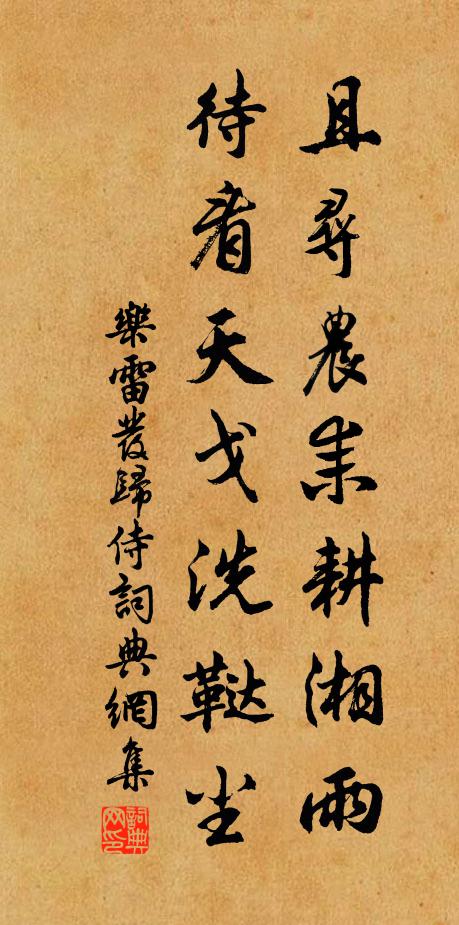 且尋農耒耕湘雨
待看天戈洗韃尘
樂雷發歸侍詞典網集
詞典网印